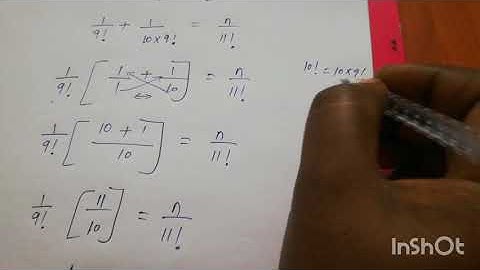 1/9! + 1/10×9! = n/11!
1/9! [1/1 + 1/10] = n/11!
10! = 10×9!
1/9! [10 + 1/10] = n/11!
1/9! [11/10] = n/11!
InShOt